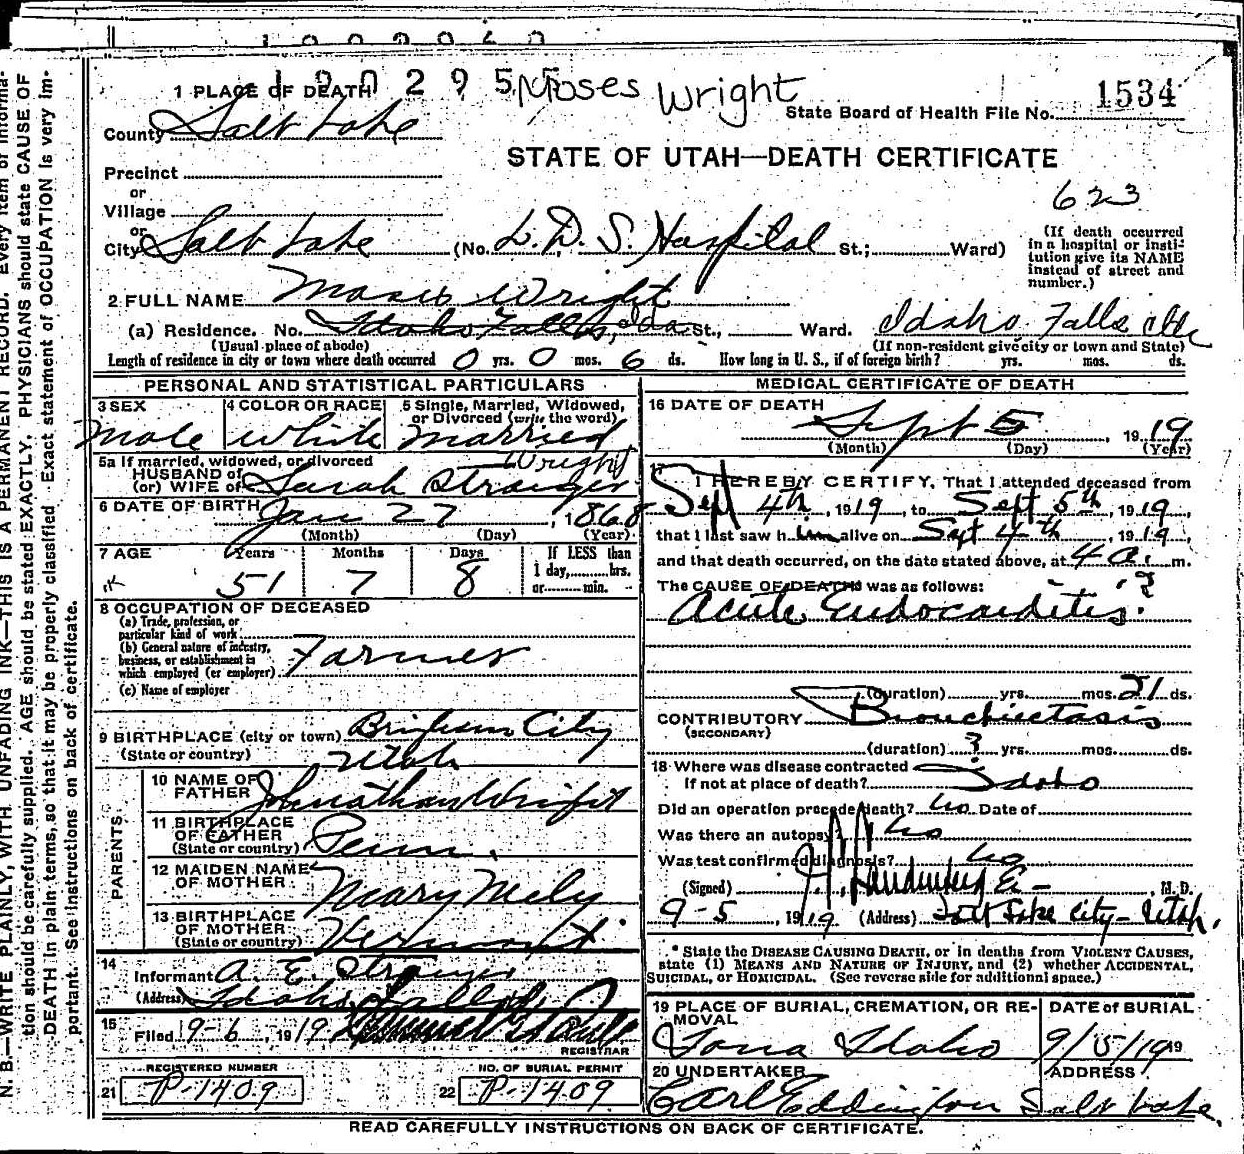 1902955 Moses Wright
1 PLACE OF DEATH
State Board of Health File No. 1534
County Salt Lake
STATE OF UTAH—DEATH CERTIFICATE
Precinct
or
Village
623
or
City Salt Lake (No. L. D. S. Hospital St.; Ward)
(If death occurred in a hospital or insti-
tution give its NAME
instead of street and
number.)
2 FULL NAME Moses Wright
(a) Residence. No. Idaho Falls, Ida St., Ward. Idaho Falls Ida
(Usual place of abode) (If non-resident give city or town and State)
Length of residence in city or town where death occurred 0 yrs. 0 mos. 6 ds. How long in U. S., if of foreign birth? yrs. mos. ds.
PERSONAL AND STATISTICAL PARTICULARS
3 SEX
Male
4 COLOR OR RACE
White
5 Single, Married, Widowed,
or Divorced (write the word)
Married
5a If married, widowed, or divorced
HUSBAND of
(or) WIFE of Sarah Wright
6 DATE OF BIRTH Jan 27, 1868
(Month) (Day) (Year)
7 AGE Years Months Days If LESS than
1 day, hrs.
or min.
51 7 8
8 OCCUPATION OF DECEASED
(a) Trade, profession, or
particular kind of work
(b) General nature of industry,
business, or establishment in
which employed (or employer) Farmer
(c) Name of employer
9 BIRTHPLACE (city or town) Brigham City
(State or country) Utah
PARENTS
10 NAME OF
FATHER Johnathan Wright
11 BIRTHPLACE
OF FATHER
(State or country) Penn.
12 MAIDEN NAME
OF MOTHER Mary Neely
13 BIRTHPLACE
OF MOTHER
(State or country) Vermont
14
Informant A. E.
(Address) Idaho Falls
15
Filed 9-6, 1919
REGISTRAR
REGISTERED NUMBER
21 P-1409
NO. OF BURIAL PERMIT
22 P-1409
MEDICAL CERTIFICATE OF DEATH
16 DATE OF DEATH
Sept 5, 1919
(Month) (Day) (Year)
17
I HEREBY CERTIFY, That I attended deceased from
Sept 4th, 1919, to Sept 5th, 1919,
that I last saw him alive on Sept 4th, 1919,
and that death occurred, on the date stated above, at 4 a. m.
The CAUSE OF DEATH* was as follows:
Acute Endocarditis ?
(duration) yrs. mos. 21 ds.
CONTRIBUTORY Bronchiectasis
(SECONDARY)
(duration) ? yrs. mos. ds.
18 Where was disease contracted
If not at place of death? Idaho
Did an operation precede death? no Date of
Was there an autopsy? no
Was test confirmed diagnosis? no
(Signed) , M. D.
9-5, 1919 (Address) Salt Lake City - Utah.
* State the DISEASE CAUSING DEATH, or in deaths from VIOLENT CAUSES,
state (1) MEANS AND NATURE OF INJURY, and (2) whether ACCIDENTAL,
SUICIDAL, or HOMICIDAL. (See reverse side for additional space.)
19 PLACE OF BURIAL, CREMATION, OR RE-
MOVAL
Iona Idaho
DATE of BURIAL
9/5/1919
20 UNDERTAKER
Carl Eddington
ADDRESS
Salt Lake
READ CAREFULLY INSTRUCTIONS ON BACK OF CERTIFICATE.
N. B.—WRITE PLAINLY, WITH UNFADING INK—THIS IS A PERMANENT RECORD. Every item of informa-
tion should be carefully supplied. AGE should be stated EXACTLY. PHYSICIANS should state CAUSE OF
DEATH in plain terms, so that it may be properly classified. Exact statement of OCCUPATION is very im-
portant. See instructions on back of certificate.